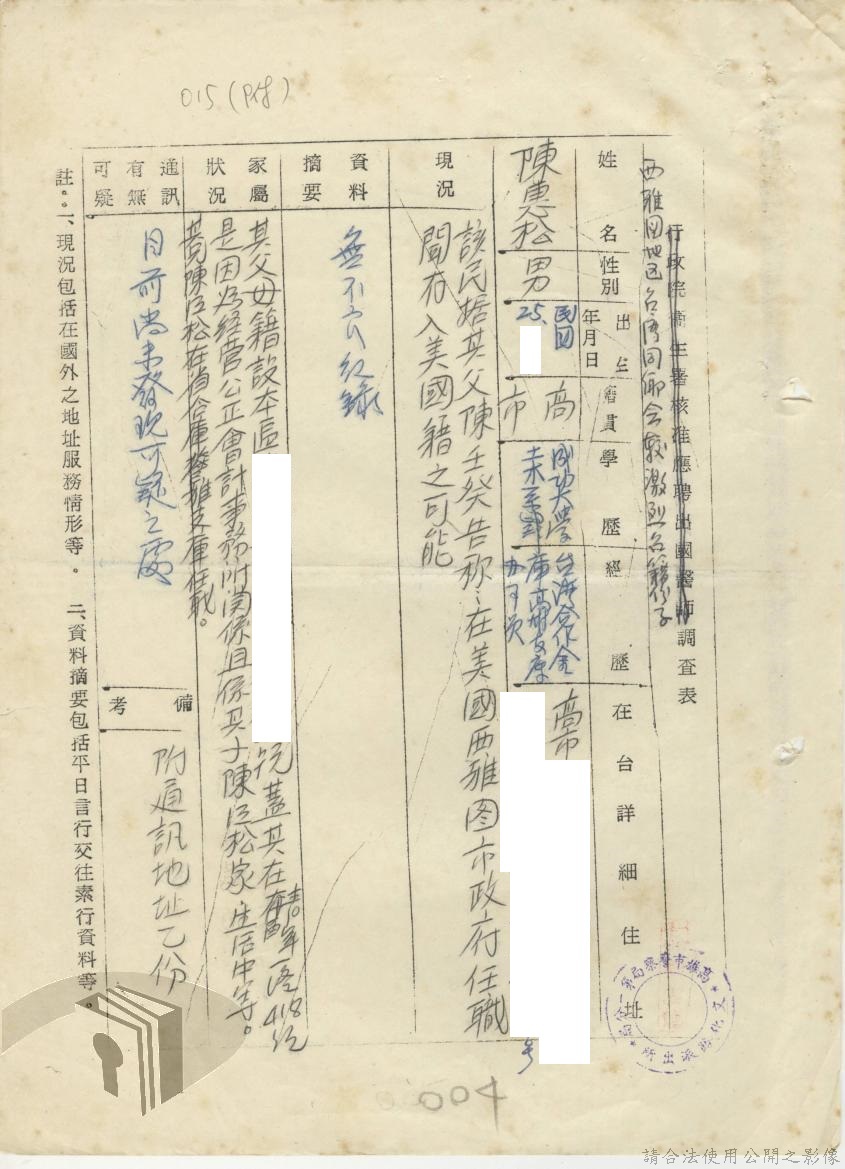 015(附)
行政院衛生署核准應聘出國醫師調查表
西雅图地区台湾同鄉会較激烈名籍份子
姓名
性別
出生年月日
籍貫
學歷
經歷
在台詳細住址
陳惠松
男
民国
25.
高市
成功大學
台灣合作金
高市
号
現況
該民据其父陳壬癸告称:在美國西雅图市政府任職
聞有入美國籍之可能
資料摘要
無不良紀錄
家屬狀況
其父母籍設本區
蓋其在
青年一路418號
是因為經营公正會計事務所関係且係其子陳
松家生活中等。
通訊有無可疑
目前尚未發現可疑之處
備考
附通訊地址乙份
註:一、現況包括在國外之地址服務情形等。 二、資料摘要包括平日言行交往素行資料等。
高雄市警察局第一分局
文化路派出所
004
請合法使用公開之影像